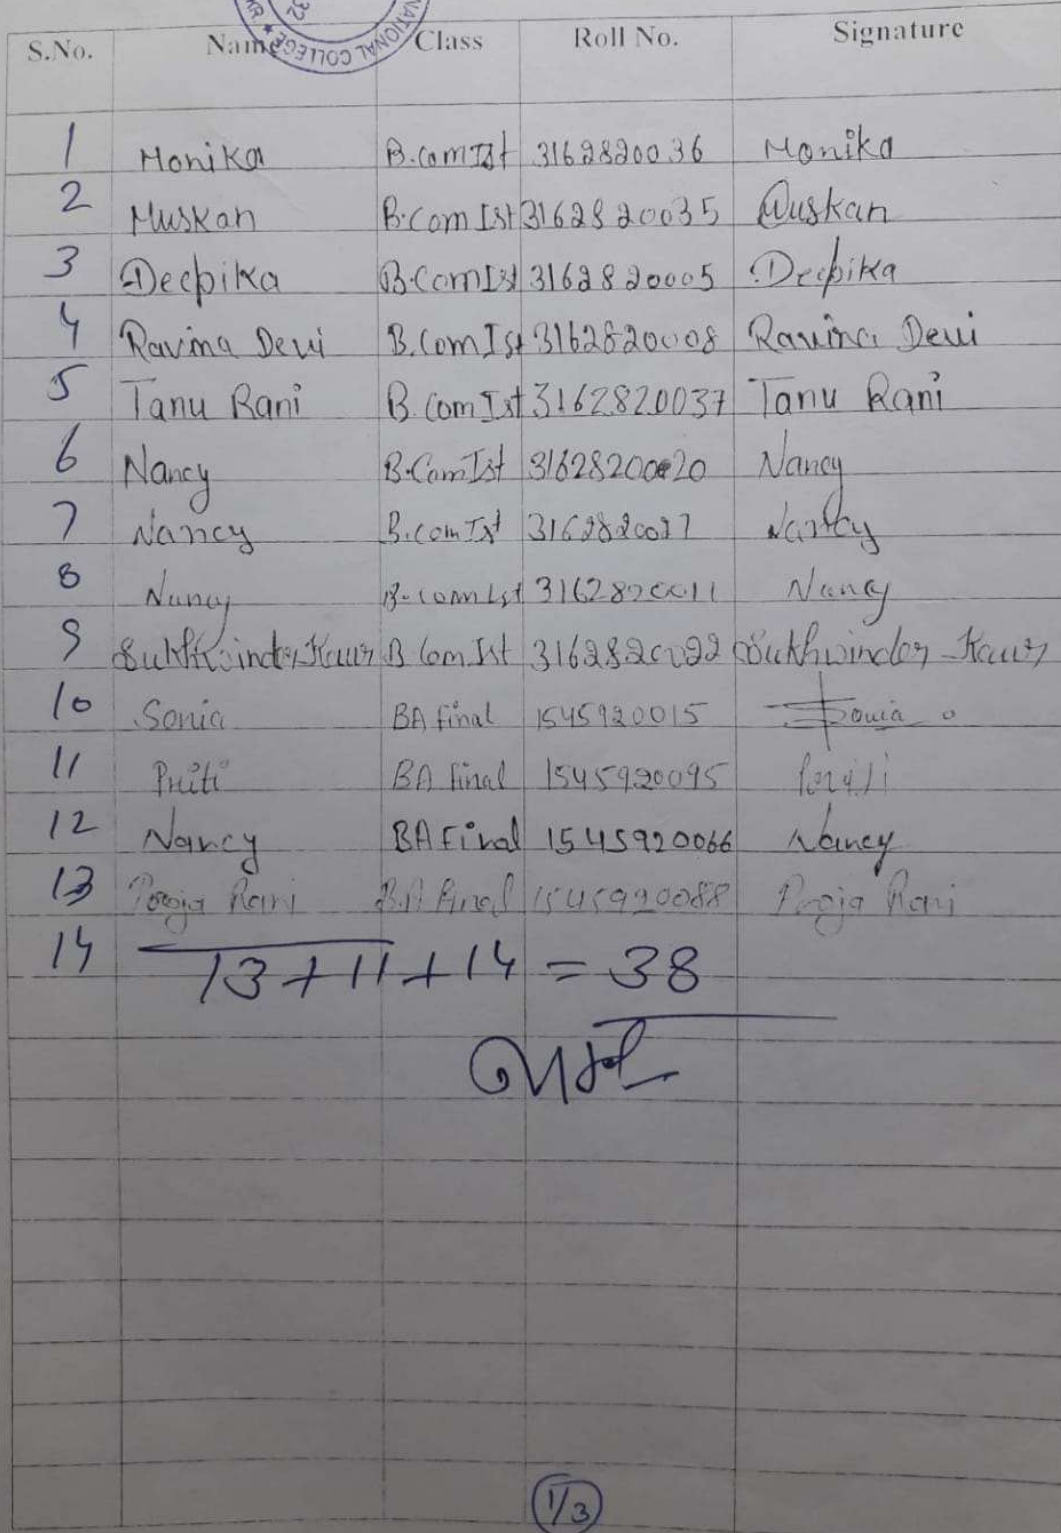 32
NATIONAL COLLEGE
S.No. Name Class Roll No. Signature
1 Monika B.com Ist 3162820036 Monika
2 Muskan B.Com Ist 3162820035 Muskan
3 Deepika B.Com Ist 3162820005 Deepika
4 Ravina Devi B.Com Ist 3162820008 Ravina Devi
5 Tanu Rani B.Com Ist 3162820037 Tanu Rani
6 Nancy B.Com Ist Nancy
7 Nancy B.com Ist Nancy
8 Nancy B.com Ist 3162820011 Nancy
9 Sukhwinder Kaur B.Com Ist 3162820022 Sukhwinder Kaur
10 Sonia BA final 1545920015 Sonia
11 Priti BA final 1545920095 Priti
12 Nancy BA Final 1545920066 Nancy
13 Pooja Rani B.A Final 1545920088 Pooja Rani
14
13 + 11 + 14 = 38
1/3